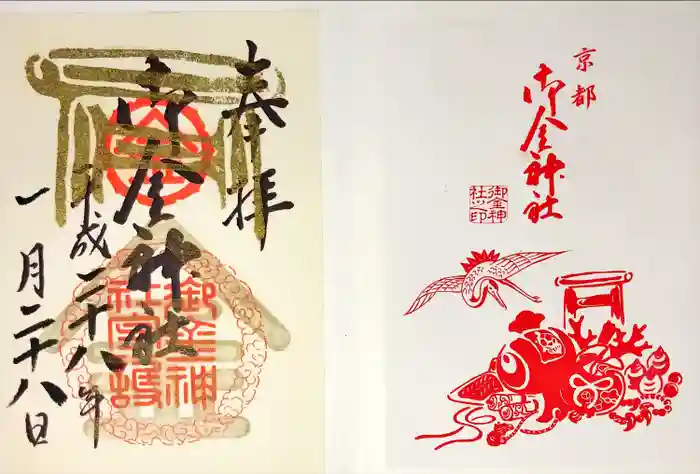 奉拝
御金神社
平成二十八年
一月二十八日
御金神
社守護
京都
御金神社
御金神
社之印